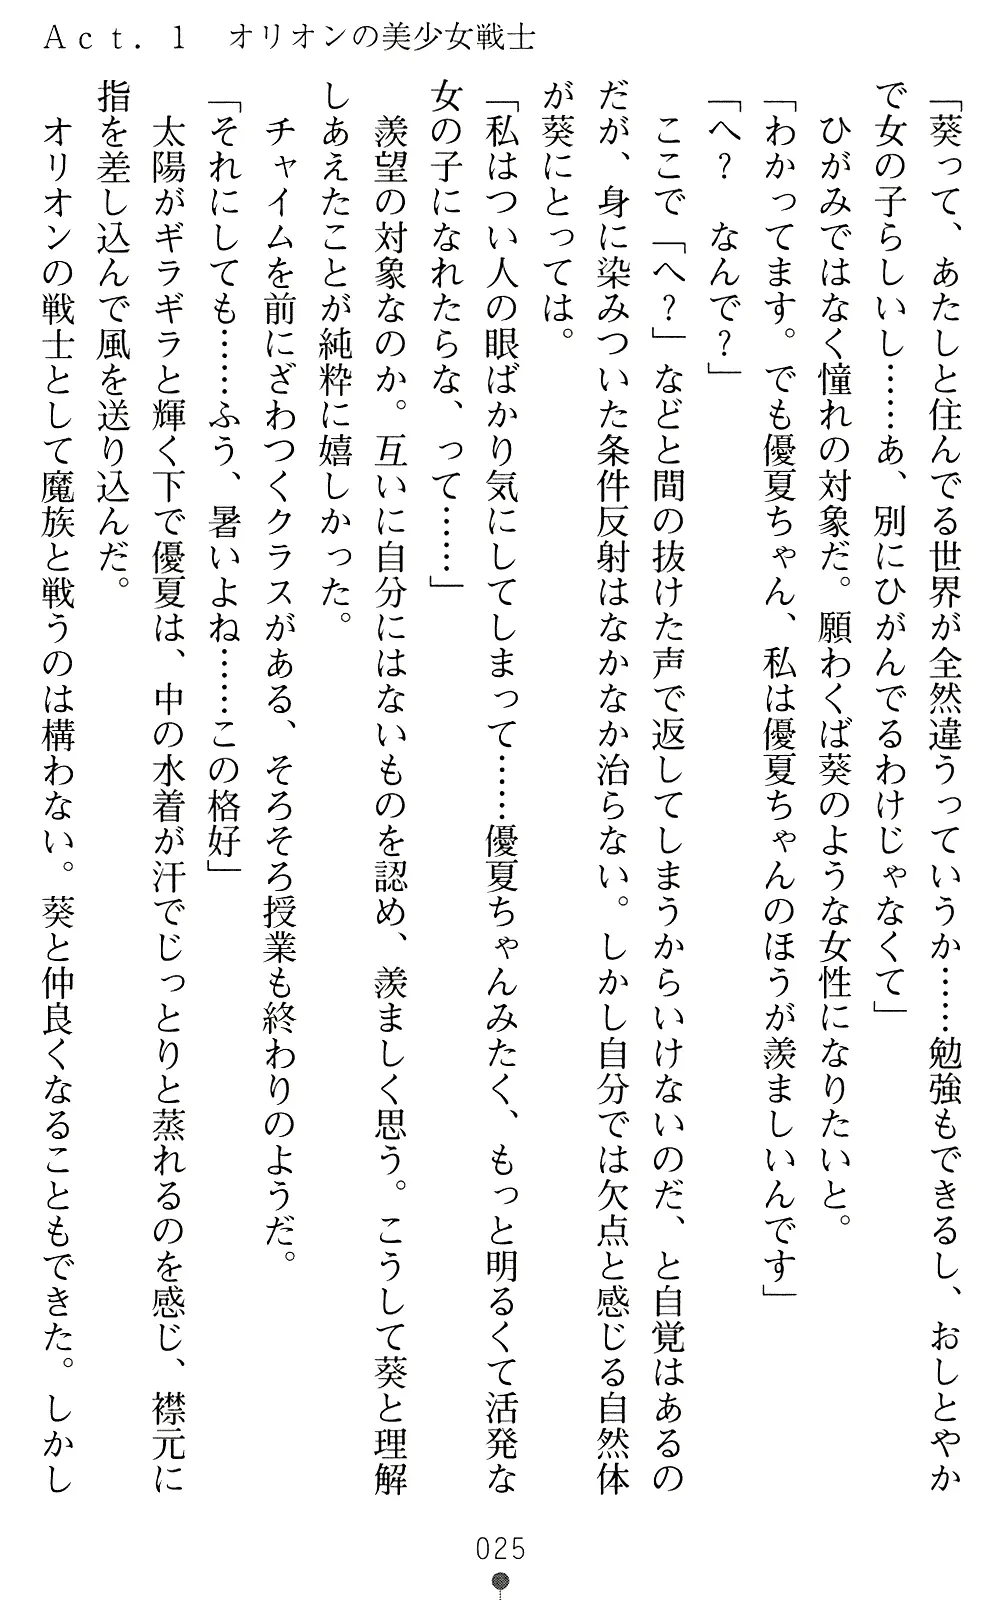 Act. 1　オリオンの美少女戦士
「葵って、あたしと住んでる世界が全然違うっていうか……勉強もできるし、おしとやか
で女の子らしいし……あ、別にひがんでるわけじゃなくて」
　ひがみではなく憧れの対象だ。願わくば葵のような女性になりたいと。
「わかってます。でも優夏ちゃん、私は優夏ちゃんのほうが羨ましいんです」
「へ？　なんで？」
　ここで「へ？」などと間の抜けた声で返してしまうからいけないのだ、と自覚はあるの
だが、身に染みついた条件反射はなかなか治らない。しかし自分では欠点と感じる自然体
が葵にとっては。
「私はつい人の眼ばかり気にしてしまって……優夏ちゃんみたく、もっと明るくて活発な
女の子になれたらな、って……」
　羨望の対象なのか。互いに自分にはないものを認め、羨ましく思う。こうして葵と理解
しあえたことが純粋に嬉しかった。
　チャイムを前にざわつくクラスがある、そろそろ授業も終わりのようだ。
「それにしても……ふう、暑いよね……この格好」
　太陽がギラギラと輝く下で優夏は、中の水着が汗でじっとりと蒸れるのを感じ、襟元に
指を差し込んで風を送り込んだ。
　オリオンの戦士として魔族と戦うのは構わない。葵と仲良くなることもできた。しかし
025